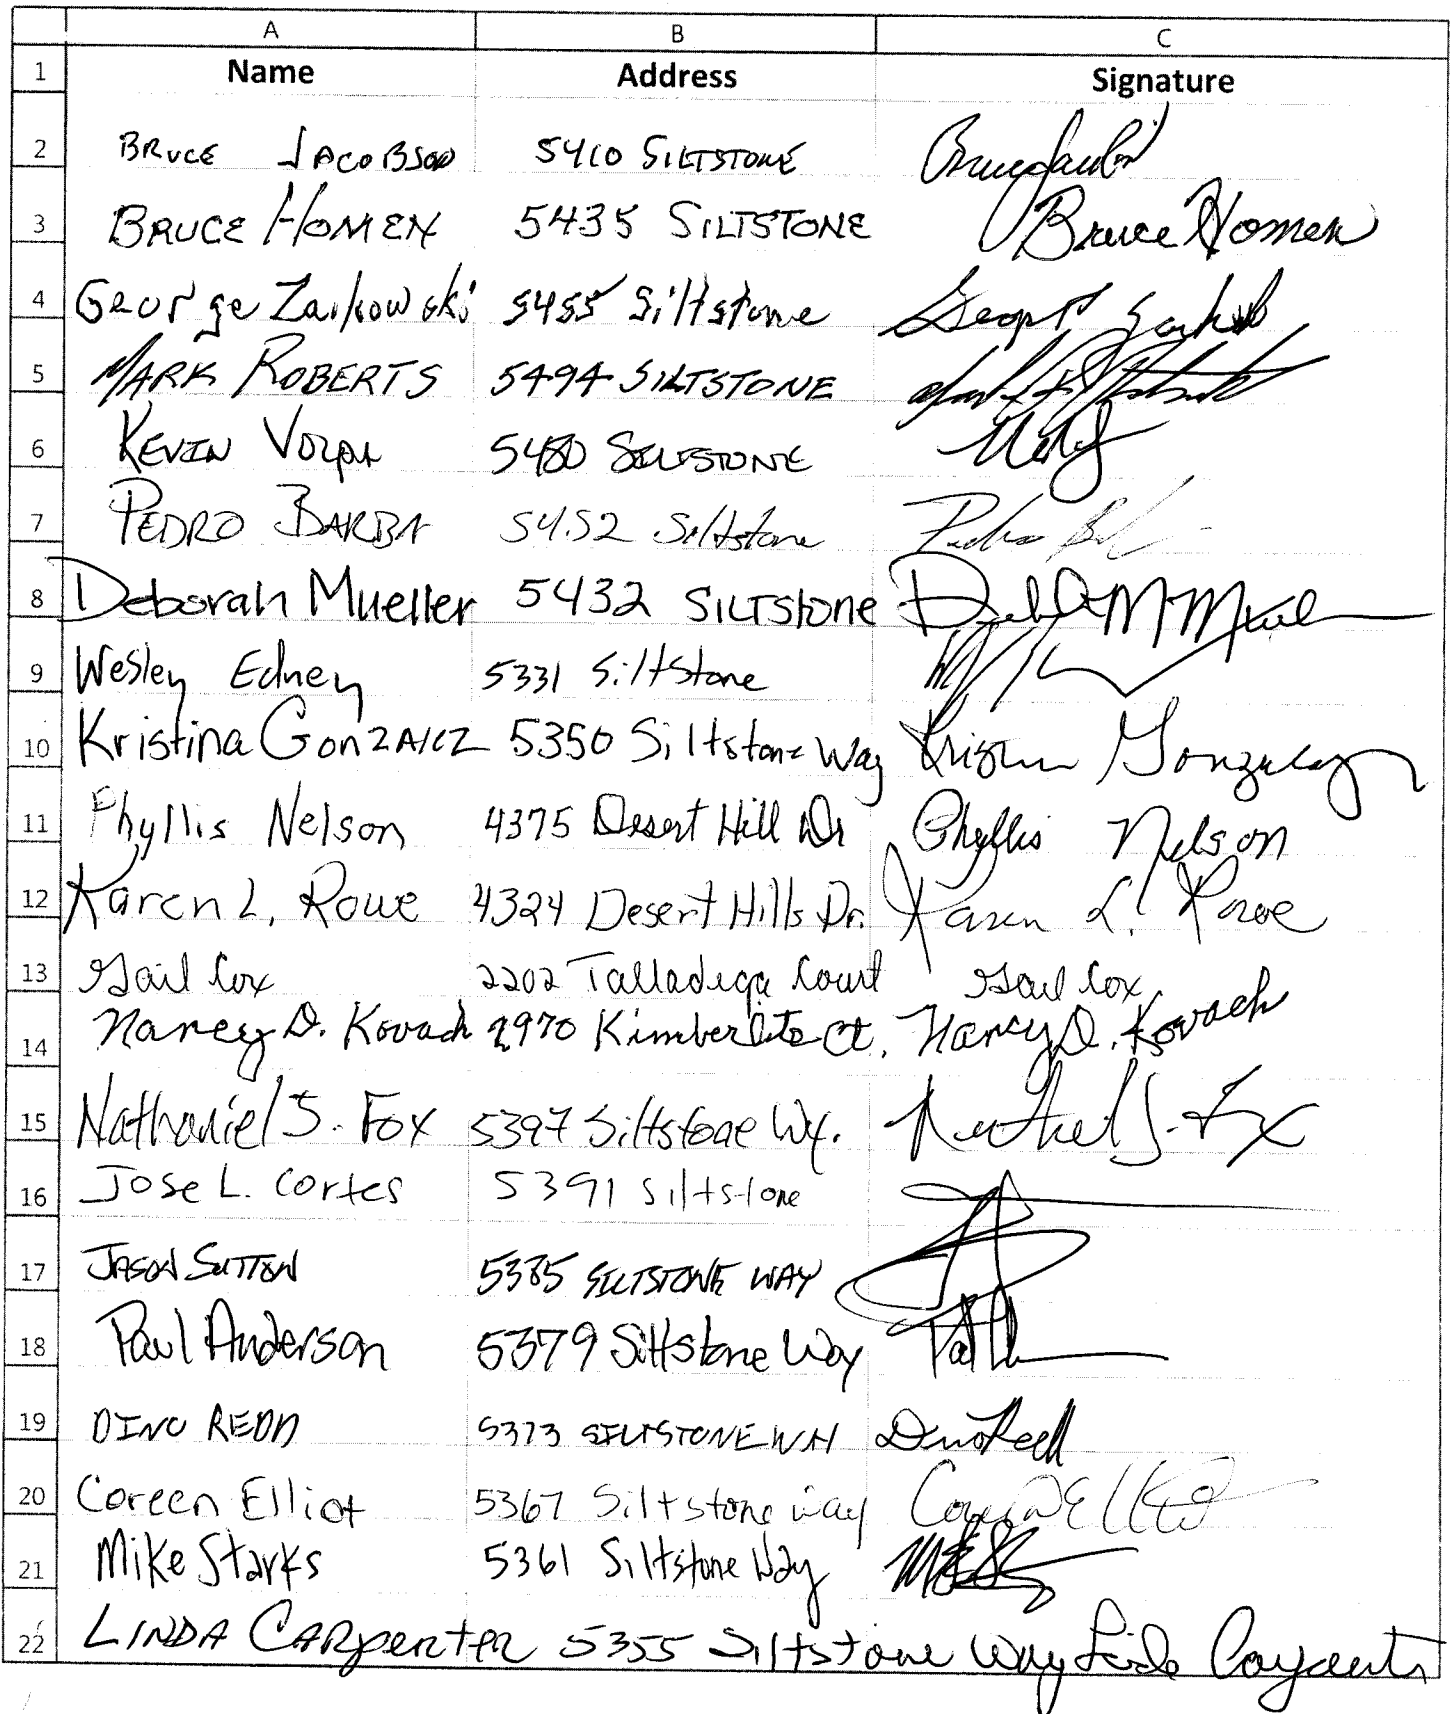 A B C
1 Name Address Signature
2 BRUCE JACOBSON 5410 SILTSTONE
3 BRUCE HOMEN 5435 SILTSTONE Bruce Homen
4 George Zaikowski 5455 Siltstone
5 MARK ROBERTS 5494 SILTSTONE
6 KEVIN 5480 SILTSTONE
7 PEDRO BARBA 5452 Siltstone Pedro
8 Deborah Mueller 5432 SILTStone
9 Wesley Edney 5331 Siltstone
10 Kristina GonzAlez 5350 Siltstone Way Gonzalez
11 Phyllis Nelson 4375 Desert Hill Dr Phyllis Nelson
12 Karen L. Rowe 4324 Desert Hills Dr. Karen L. Rowe
13 Gail Cox 2202 Talladega Court Gail Cox
14 Nancy D. Kovach 2970 Kimberlite Ct. Nancy D. Kovach
15 Nathaniel S. Fox 5397 Siltstone Wy.
16 Jose L. Cortes 5391 Siltstone
17 JASON SUTTON 5385 SILTSTONE WAY
18 Paul Anderson 5379 Siltstone Way
19 DINO REDD 5373 SILTSTONE
20 Coreen Elliot 5367 Siltstone way
21 Mike Starks 5361 Siltstone Way
22 LINDA CARPenter 5355 Siltstone Way